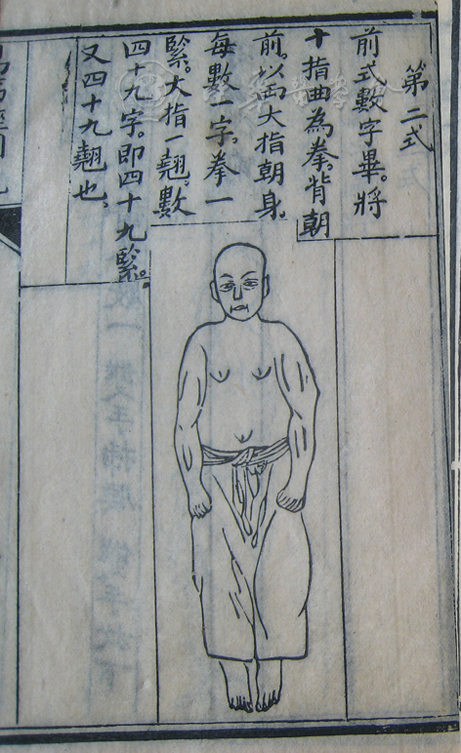 第二式
前式數字畢。將
十指曲為拳。背朝
前。以兩大指朝身。
每數一字。拳一
緊。大指一翹。數
四十九字。即四十九緊。
又四十九翹也。